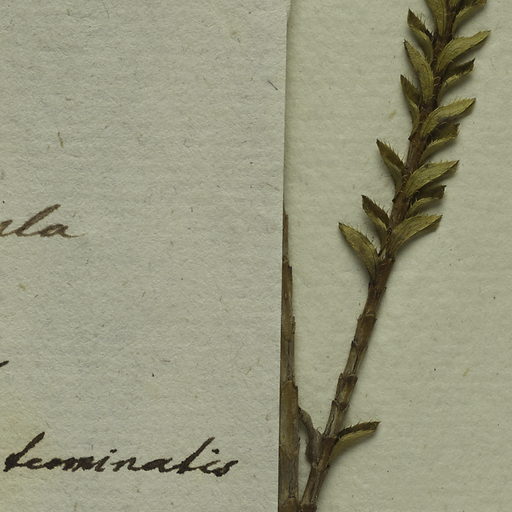 ula
terminatis